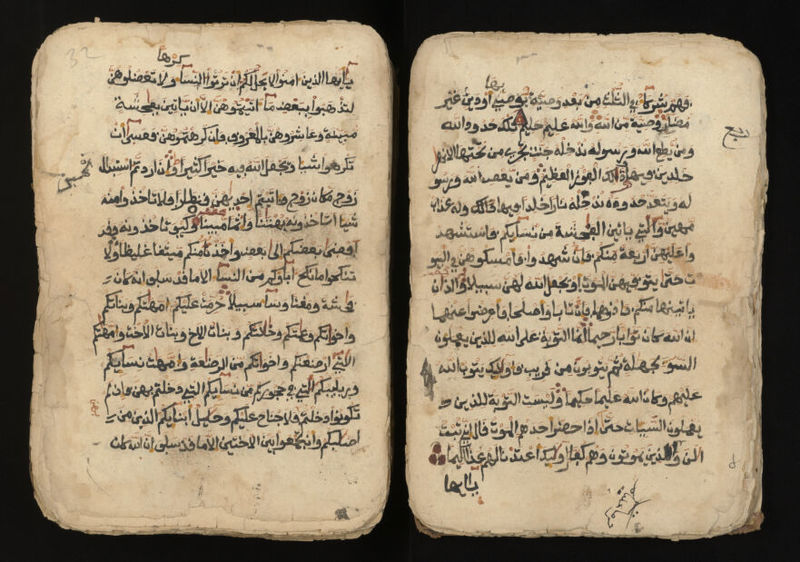 فهم شركا في الثلث من بعد وصية يوصي بها اودين غير
مضار وصية من الله والله عليم حليم تلك حدود الله
ومن يطع الله ورسوله ندخله جنت تجري من تحتها الانهر
خلدين فيها وذلك الفوز العظيم ومن يعص الله ورسو
له ويتعد حدوده ندخله نارا خلدا فيها ذلك وله عذاب
مهين والتي ياتين الفحشة من نسايكم فاستشهد
وا عليهن اربعة منكم فان شهدوا فامسكوهن في البيو
ت حتى يتوفيهن الموت او يجعل الله لهن سبيلا والذان
ياتينها منكم فاذوهما فان تابا واصلحا فاعرضوا عنهما
ان الله كان توابا رحيما انما التوبة على الله للذين يعملون
السوء بجهلة ثم يتوبون من قريب فاوليك يتوب الله
عليهم وكان الله عليما حكيما وليست التوبة للذين
يعملون السيات حتى اذا حضر احدهم الموت قال اني تبت
الن ولا الذين يموتون وهم كفار اوليك اعتدنا لهم عذابا اليما
يايها
32
يايها الذين امنوا لا يحل لكم ان ترثوا النسا كرها ولا تعضلوهن
لتذهبوا ببعض ما اتيتموهن الا ان ياتين بفحشة
مبينة وعاشروهن بالمعروف فان كرهتموهن فعسى ان
تكرهوا شيا ويجعل الله فيه خيرا كثيرا وان اردتم استبدال
زوج مكان زوج واتيتم احديهن قنطارا فلا تاخذوا منه
شيا اتاخذونه بهتنا واثما مبينا وكيف تاخذونه وقد
افضى بعضكم الى بعض واخذن منكم ميثقا غليظا ولا
تنكحوا ما نكح اباوكم من النسا الا ما قد سلف انه كان
فحشة ومقتا وسا سبيلا حرمت عليكم امهتكم وبناتكم
واخواتكم وعمتكم وخلتكم وبنات الاخ وبنات الاخت وامهتكم
التي ارضعنكم واخواتكم من الرضعة وامهت نسايكم
وربيبكم التي في حجوركم من نسايكم التي دخلتم بهن فان لم
تكونوا دخلتم فلا جناح عليكم وحليل ابنايكم الذين من
اصلبكم وان تجمعوا بين الاختين الا ما قد سلف ان الله كان